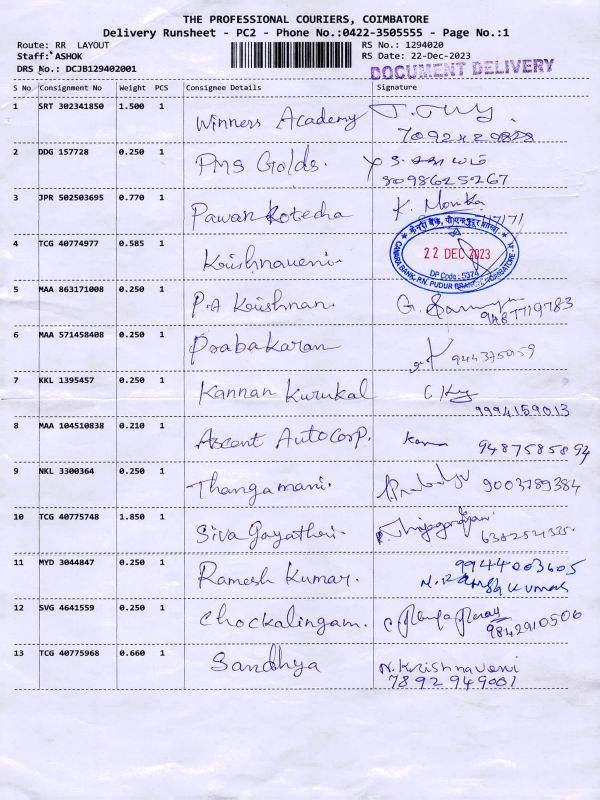 THE PROFESSIONAL COURIERS, COIMBATORE
Delivery Runsheet - PC2 - Phone No.:0422-3505555 - Page No.:1
Route: RR LAYOUT
RS No.: 1294020
Staff: ASHOK
RS Date: 22-Dec-2023
DRS No.: DCJB129402001
DOCUMENT DELIVERY
S No Consignment No Weight PCS Consignee Details Signature
1 SRT 302341850 1.500 1 Winners Academy
2 DDG 157728 0.250 1 PMS Golds.
8098625267
3 JPR 502503695 0.770 1 Pawan Kotecha K. Monika
4 TCG 40774977 0.585 1 Krishnaveni.
केनरा बैंक
22 DEC 2023
DP Code: 5374
CANARA BANK, P.N. PUDUR BRANCH, COIMBATORE
5 MAA 863171008 0.250 1 P.A Krishnan.
9487719783
6 MAA 571458408 0.250 1 Prabakaran
7 KKL 1395457 0.250 1 Kannan Kurukal
9994159013
8 MAA 104510838 0.210 1 Ascent AutoCorp. 9487585894
9 NKL 3300364 0.250 1 Thangamani. 9003789384
10 TCG 40775748 1.850 1 Siva Gayathri.
11 MYD 3044847 0.250 1 Ramesh Kumar. 9944003605
M. Ramesh Kumar
12 SVG 4641559 0.250 1 Chockalingam.
9842910506
13 TCG 40775968 0.660 1 Sandhya N. Krishnaveni
7892949001